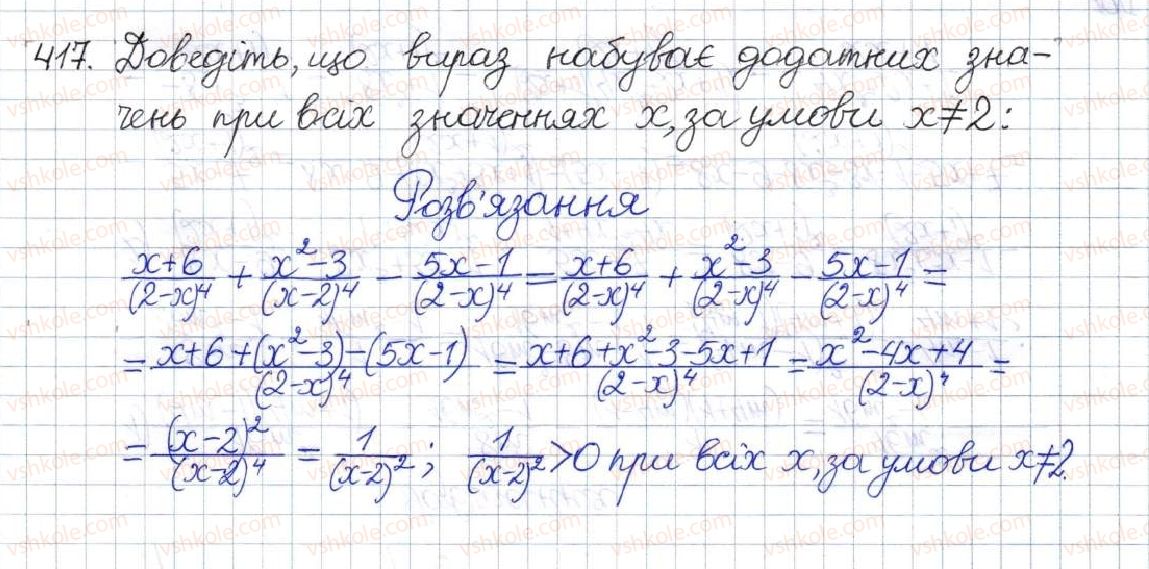 417. Доведіть, що вираз набуває додатних зна-
чень при всіх значеннях x, за умови x≠2:
Розв'язання
(x+6)/(2-x)⁴ + (x²-3)/(x-2)⁴ - (5x-1)/(2-x)⁴ = (x+6)/(2-x)⁴ + (x²-3)/(2-x)⁴ - (5x-1)/(2-x)⁴ =
= (x+6+(x²-3)-(5x-1))/(2-x)⁴ = (x+6+x²-3-5x+1)/(2-x)⁴ = (x²-4x+4)/(2-x)⁴ =
= (x-2)²/(x-2)⁴ = 1/(x-2)²; 1/(x-2)² >0 при всіх x, за умови x≠2.